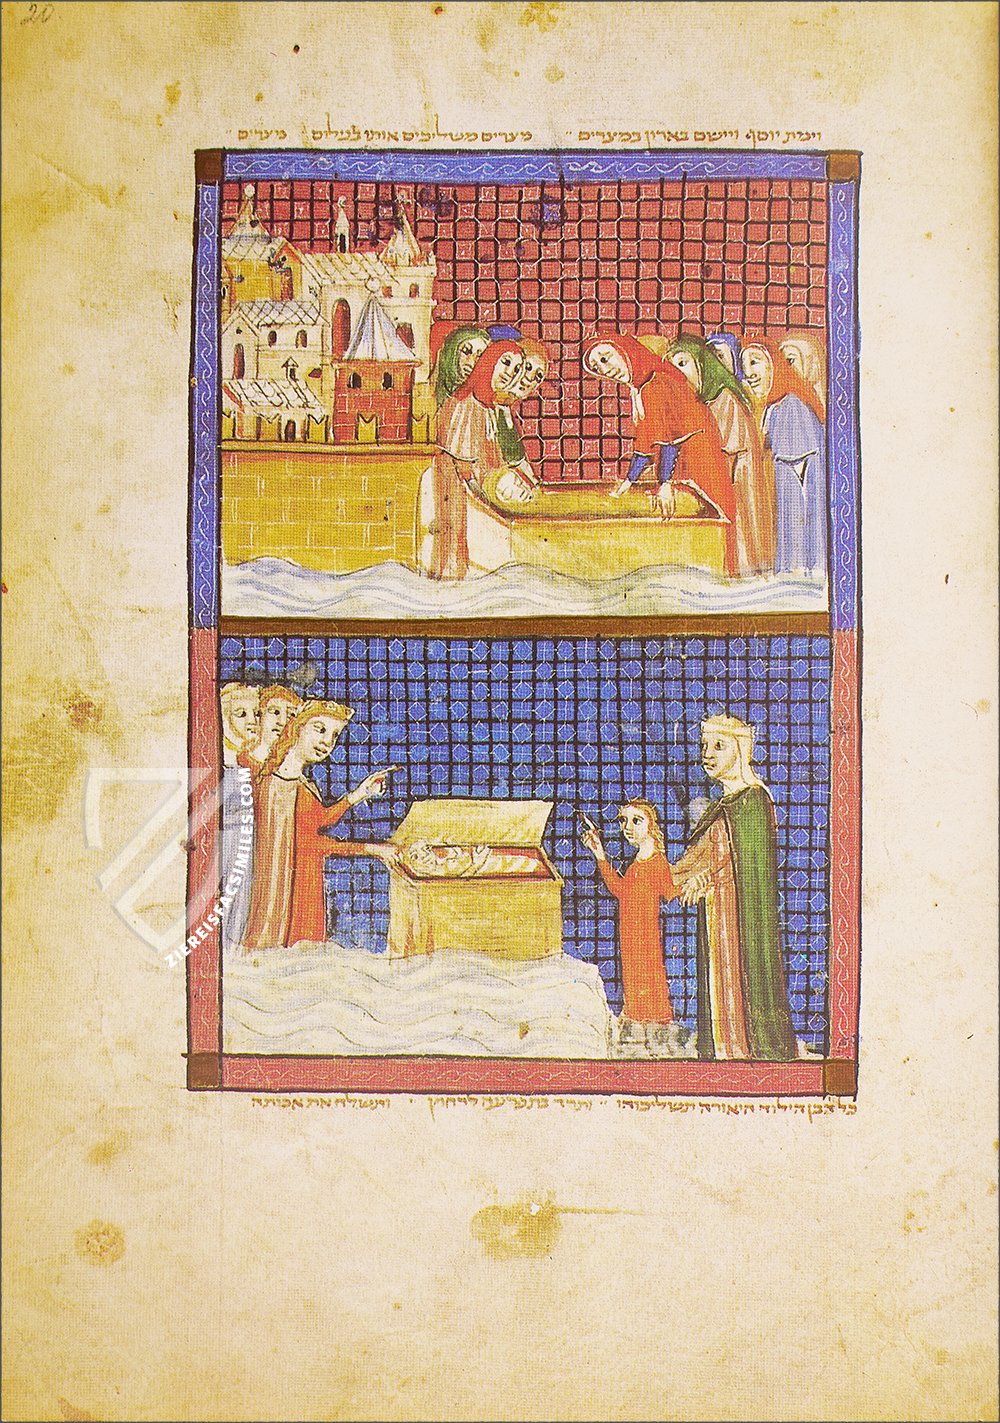 20
וימת יוסף ויישם בארון במצרים ״ מצרים משליכים אותו לנילוס מצרים ״
כל הבן הילוד היאורה תשליכוהו ״ ותרד בת פרעה לרחוץ ותשלח את אמתה
ZIEREISFACSIMILES.COM